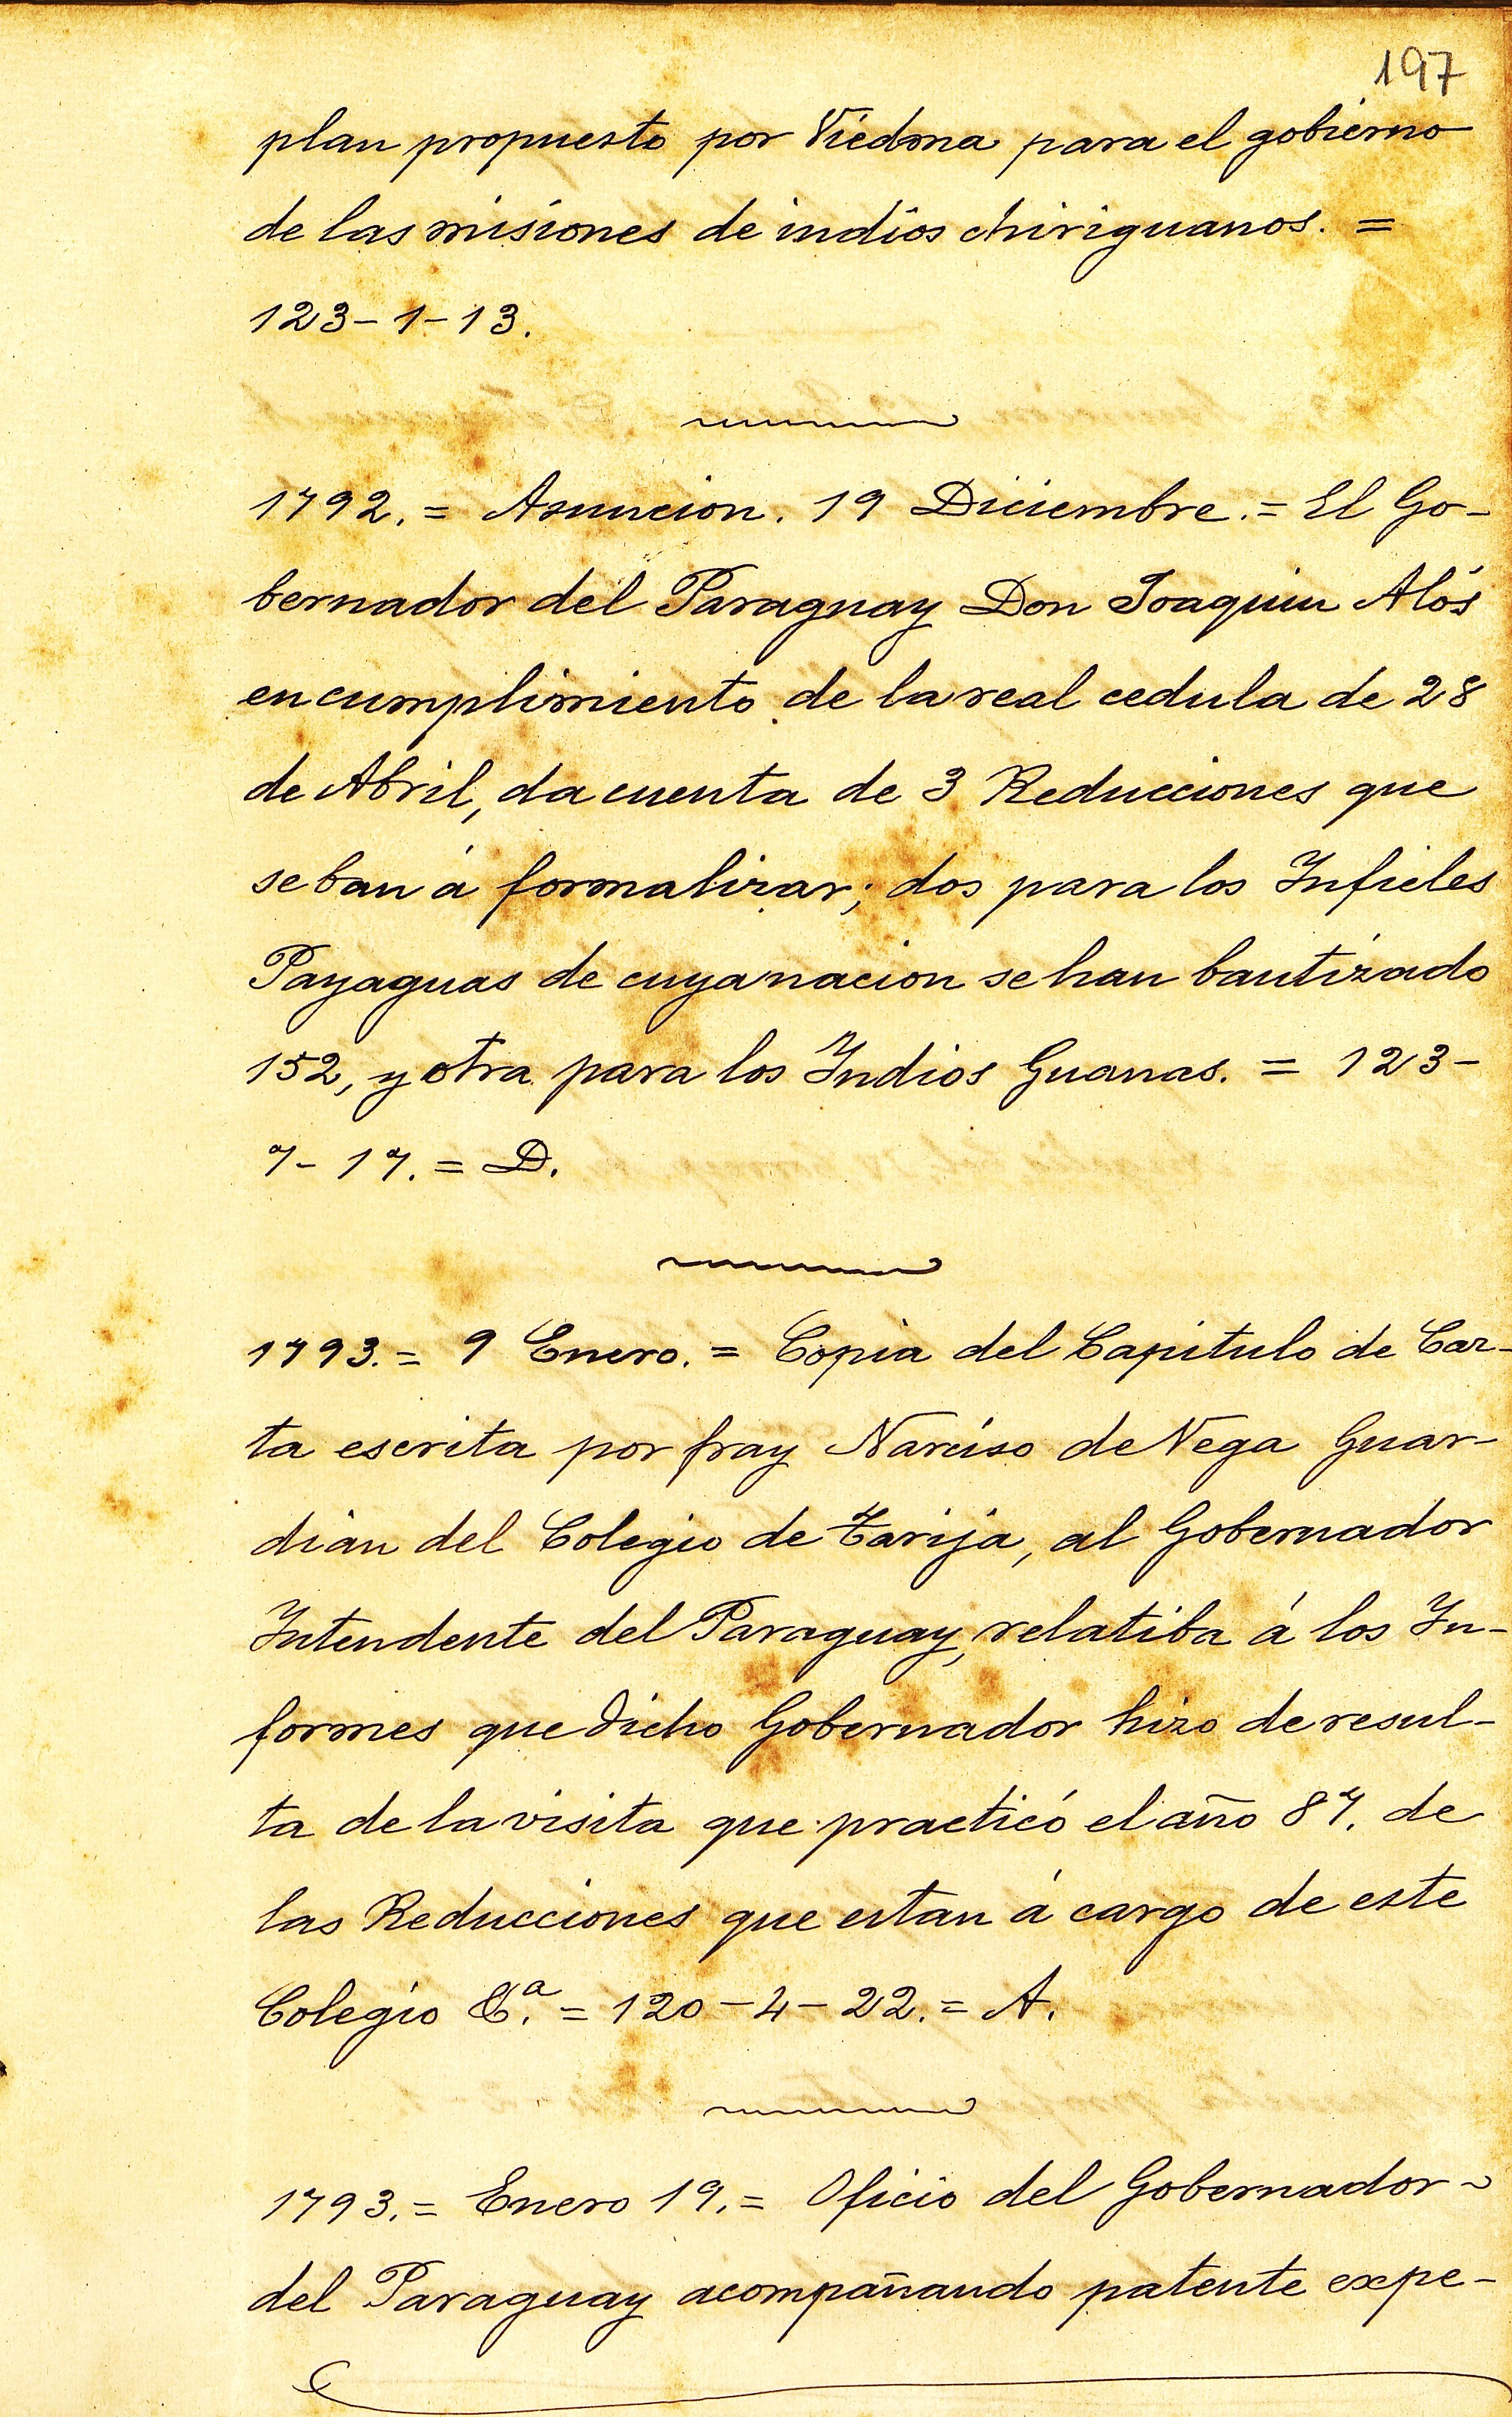 197
plan propuesto por Viedma para el gobierno
de las misiones de indios chiriguanos. =
123-1-13.
1792. = Asuncion. 19 Diciembre. = El Go-
bernador del Paraguay Don Joaquin Alós
en cumplimiento de la real cedula de 28
de Abril, da cuenta de 3 Reducciones que
se ban á formalizar; dos para los Infieles
Payaguas de cuya nacion se han bautizado
152, y otra para los Indios Guanas. = 123-
7-17. = D.
1793. = 9 Enero. = Copia del Capitulo de Car-
ta escrita por fray Narciso de Vega Guar-
dian del Colegio de Tarija, al Gobernador
Intendente del Paraguay, relatiba á los In-
formes que dicho Gobernador hizo de resul-
ta de la visita que practicó el año 87. de
las Reducciones que estan á cargo de este
Colegio &.ª = 120-4-22. = A.
1793. = Enero 19. = Oficio del Gobernador-
del Paraguay acompañando patente expe-